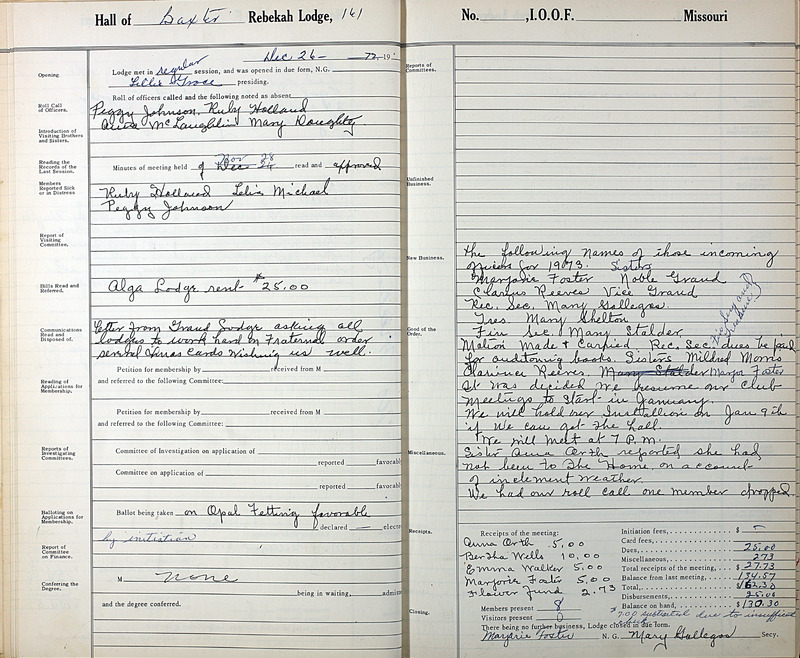 Hall of Baxter Rebekah Lodge, 161
Dec 26 - 72, 19
Opening.
Lodge met in regular session, and was opened in due form, N.G.
Lillie Grace presiding.
Roll Call of Officers.
Roll of officers called and the following noted as absent
Peggy Johnson, Ruby Holland
Introduction of Visiting Brothers and Sisters.
Anna McLaughlin Mary Doughty.
Reading the Records of the Last Session.
Minutes of meeting held of Nov 28 read and approved
Members Reported Sick or in Distress
Ruby Holland Lelia Michael
Peggy Johnson
Report of Visiting Committee.
Bills Read and Referred.
Alga Lodge rent $25.00
Communications Read and Disposed of.
letter from Grand Lodge asking all
lodges to work hard in Fraternal order
several Xmas cards wishing us well.
Petition for membership by received from M
and referred to the following Committee:
Reading of Applications for Membership.
Petition for membership by received from M
and referred to the following Committee:
Reports of Investigating Committees.
Committee of Investigation on application of
reported favorabl
Committee on application of
reported favorabl
Balloting on Applications for Membership.
Ballot being taken on Opal Fetting favorable
declared — electe
by initiation
Report of Committee on Finance.
Conferring the Degree.
M none
being in waiting, admitte
and the degree conferred.
No. , I.O.O.F. Missouri
Reports of Committees.
Unfinished Business.
New Business.
the following names of those incoming
officers for 19073. Sisters
Marjorie Foster Noble Grand
Clarine Reeves Vice Grand
Rec. Sec. Mary Gallegos
Tres. Mary Shelton
Good of the Order.
Fin Sec. Mary Stalder
Motion Made & Carried Rec. Sec. dues be paid
for auditoning books. Sisters Mildred Morris
Clarince Reeves, Mary Stalder Marjor Foster
It was decided we resume our club
meetings to start in January.
We will hold our Installion on Jan 9th
if we can get the hall.
We will meet at 7 P.M.
Miscellaneous.
Sister Anna Orth reported she had
not been to The Home, on account
of inclement weather.
We had our roll call one member dropped.
Receipts.
Receipts of the meeting:
Anna Orth 5.00
Bertha Wells 10.00
Emma Walker 5.00
Marjorie Foster 5.00
Flower Fund 2.73
Initiation fees, $ —
Card fees,
Dues, 25.00
Miscellaneous, 273
Total receipts of the meeting, $ 27.73
Balance from last meeting, 134.57
Total, $ 162.30
Disbursements, 25.00
Balance on hand, $ 130.30
Members present 8
Visitors present 0
Closing.
There being no further business, Lodge closed in due form.
Marjorie Foster N. G. Mary Gallegos Secy.